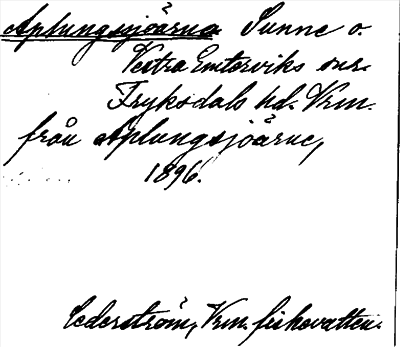 Aplungssjöarna Sunne o.
Vestra Emterviks snr.
Fryksdals hd. Vrm.
från Aplungsjöarne,
1896.
Cederström, Vrm. fiskevatten.